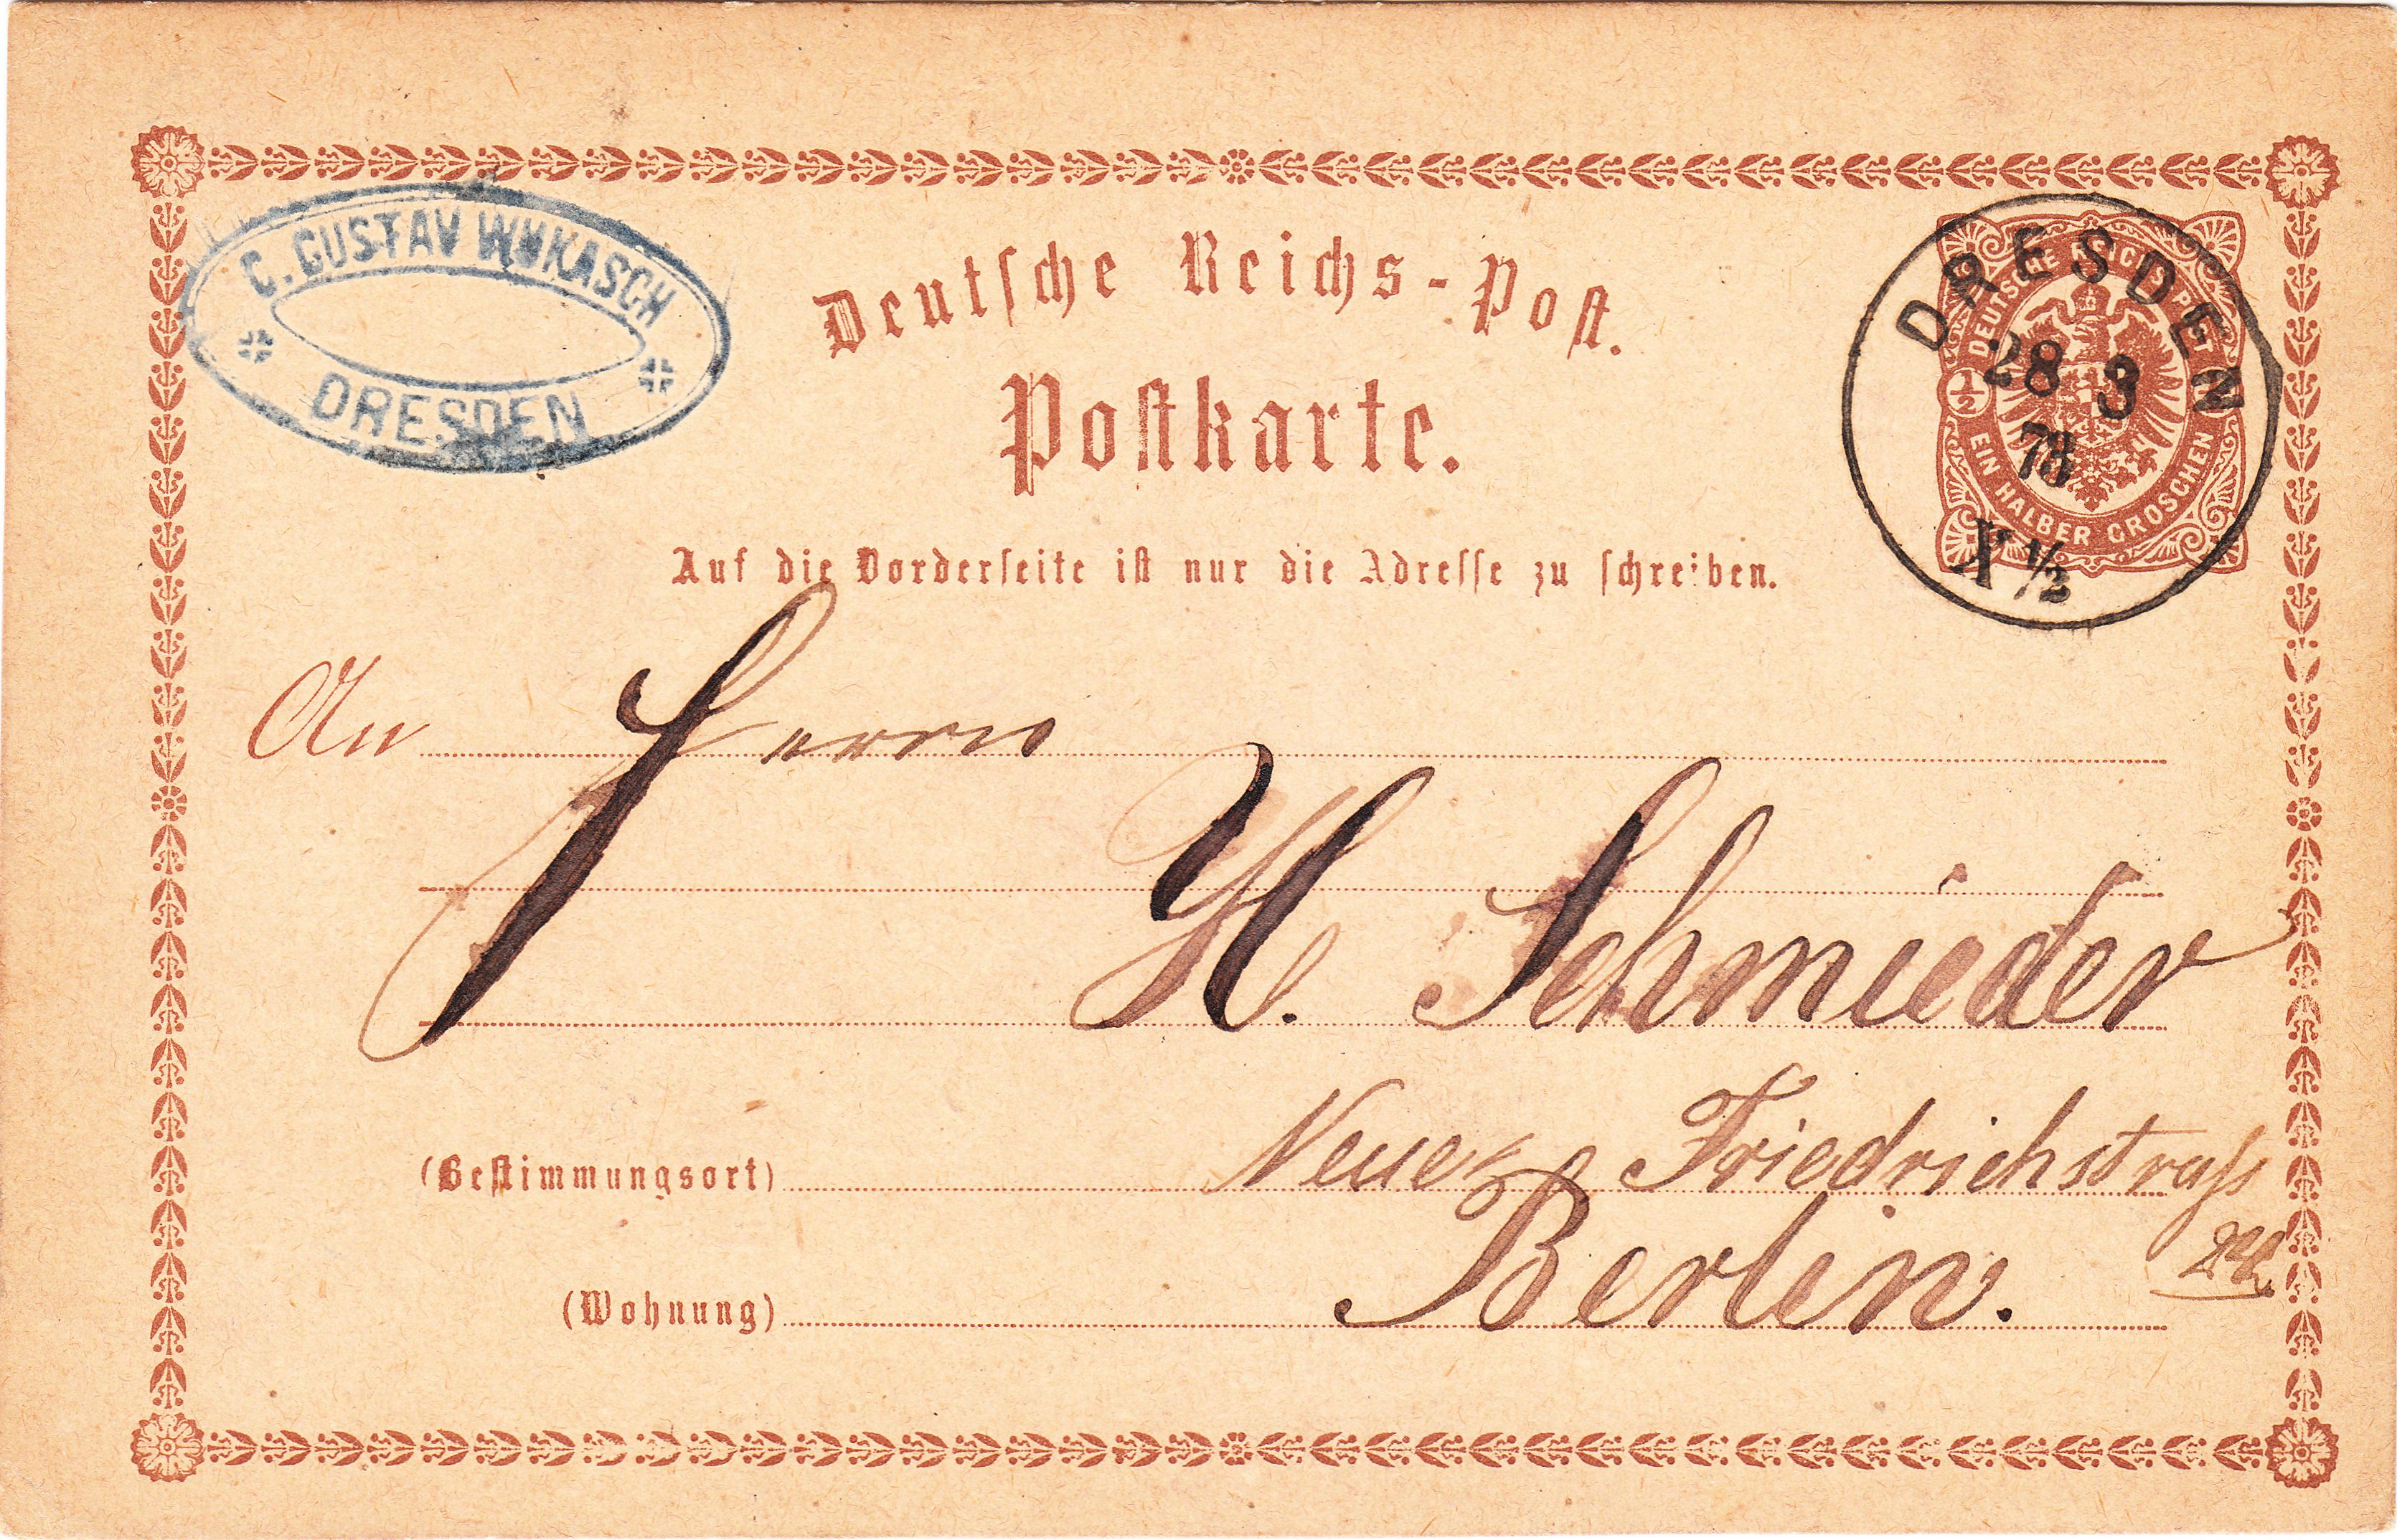 C. GUSTAV WUKASCH
DRESDEN
Deutsche Reichs-Post.
Postkarte.
DEUTSCHE REICHS POST
1/2
EIN HALBER GROSCHEN
DRESDEN
28 3
X 1/2
Auf die Vorderseite ist nur die Adresse zu schreiben.
An Herrn
H. Schmieder
(Bestimmungsort) Neue Friedrichstrass
(Wohnung) Berlin.